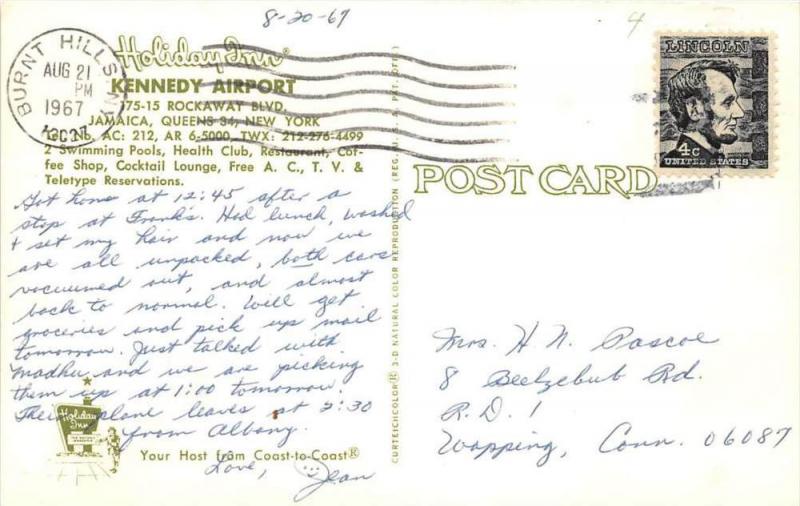 8-20-67
4
BURNT HILLS NY
AUG 21
PM
1967
Holiday Inn®
KENNEDY AIRPORT
175-15 ROCKAWAY BLVD.
JAMAICA, QUEENS 34, NEW YORK
Tel. No. AC: 212, AR 6-5000 TWX: 212-276-4499
2 Swimming Pools, Health Club, Restaurant, Cof-
fee Shop, Cocktail Lounge, Free A. C., T. V. &
Teletype Reservations.
Got home at 12:45 after a
stop at Frank's. Had lunch, washed
+ set my hair and now we
are all unpacked, both cars
vacuumed out, and almost
back to normal. Will get
groceries and pick up mail
tomorrow. Just talked with
Madhu and we are picking
them up at 1:00 tomorrow.
Their plane leaves at 2:30
from Albany.
Love, Jean
Holiday Inn
Your Host from Coast-to-Coast®
CURTEICHCOLOR® 3-D NATURAL COLOR REPRODUCTION (REG. U.S.A. PAT. OFF.)
POST CARD
LINCOLN
4c
UNITED STATES
Mrs. H. N. Pascoe
8 Beelzebub Rd.
R.D. 1
Wapping, Conn. 06087